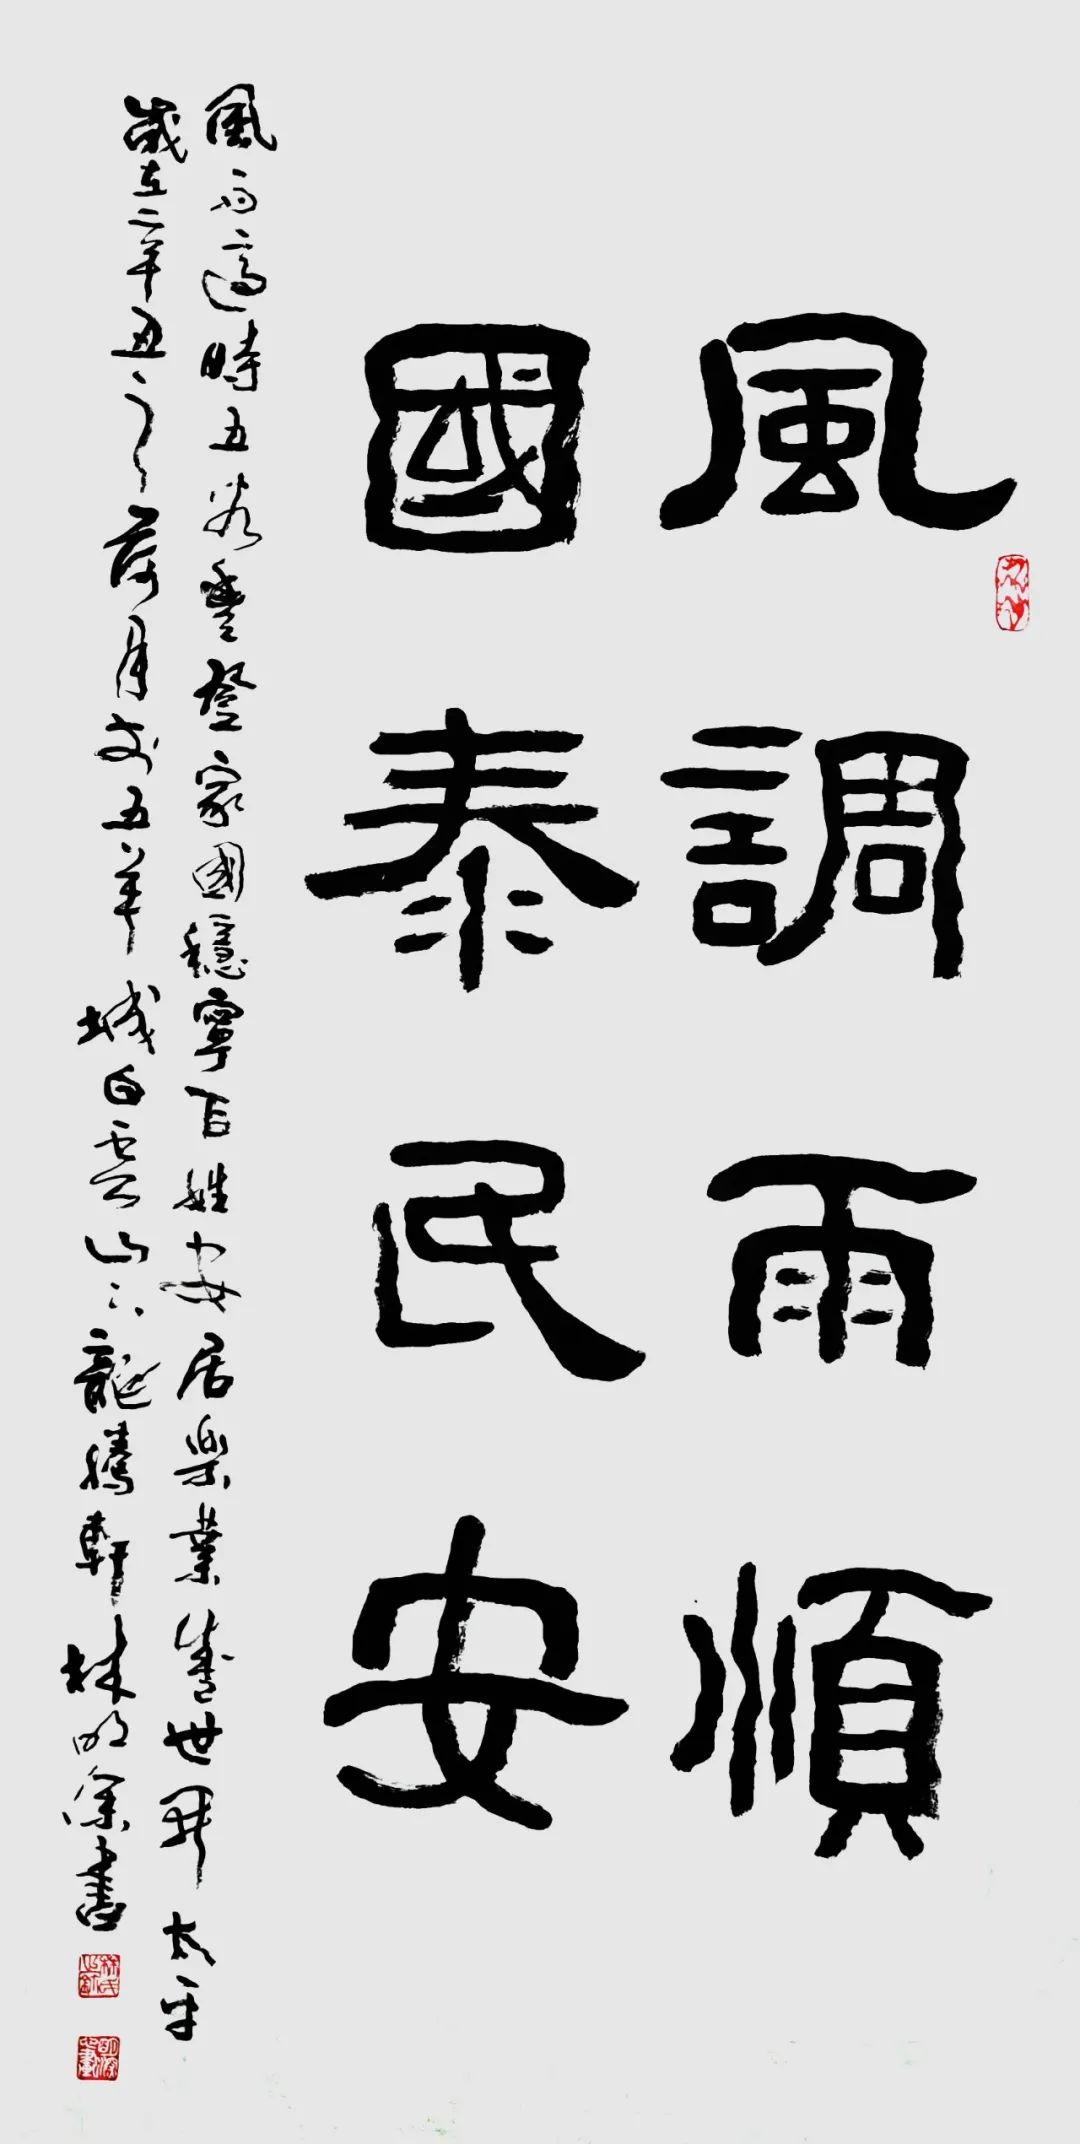 風調雨順
國泰民安
風雨適時五穀豐登家國穩寧百姓安居樂業盛世昇太平
歲在辛丑之荷月於五羊城白雲山下龍騰軒林明深書